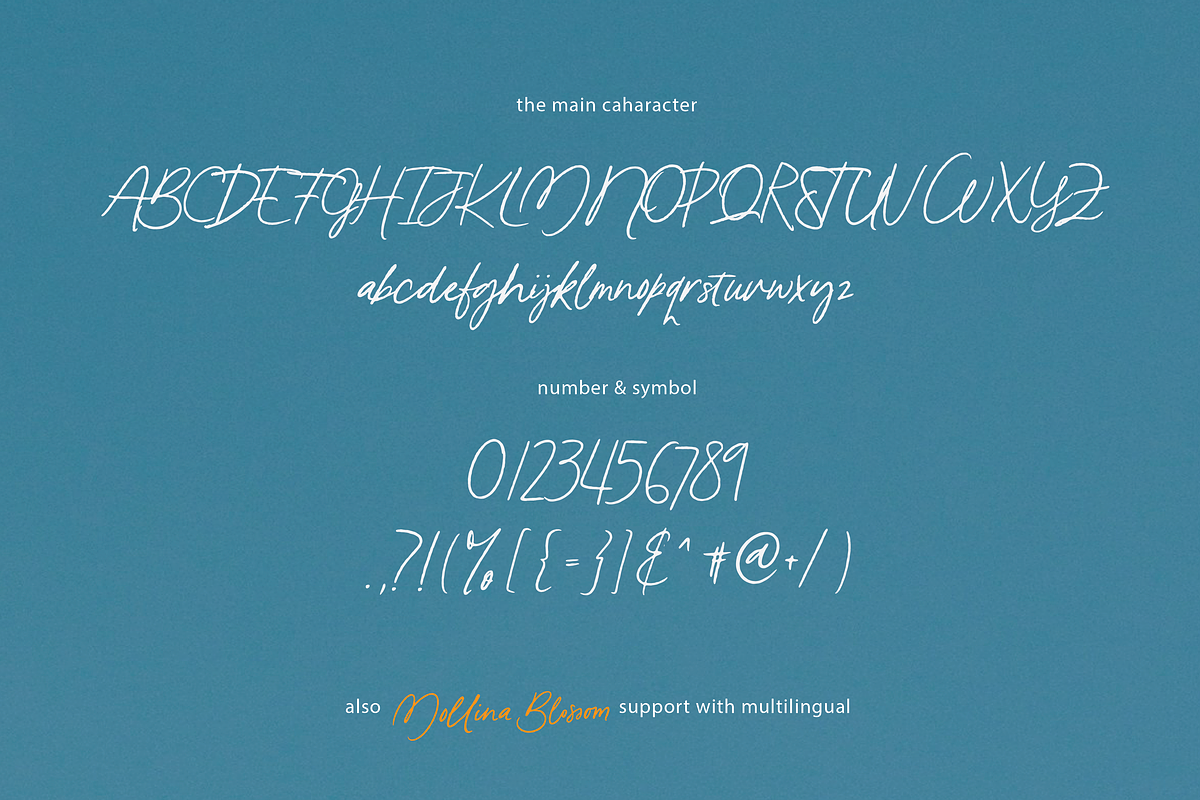 the main caharacter
ABCDEFGHIJKLMNOPQRSTUVWXYZ
abcdefghijklmnopqrstuvwxyz
number & symbol
0123456789
.,?!(%[{=}]&^#@+/)
also Mollina Blossom support with multilingual